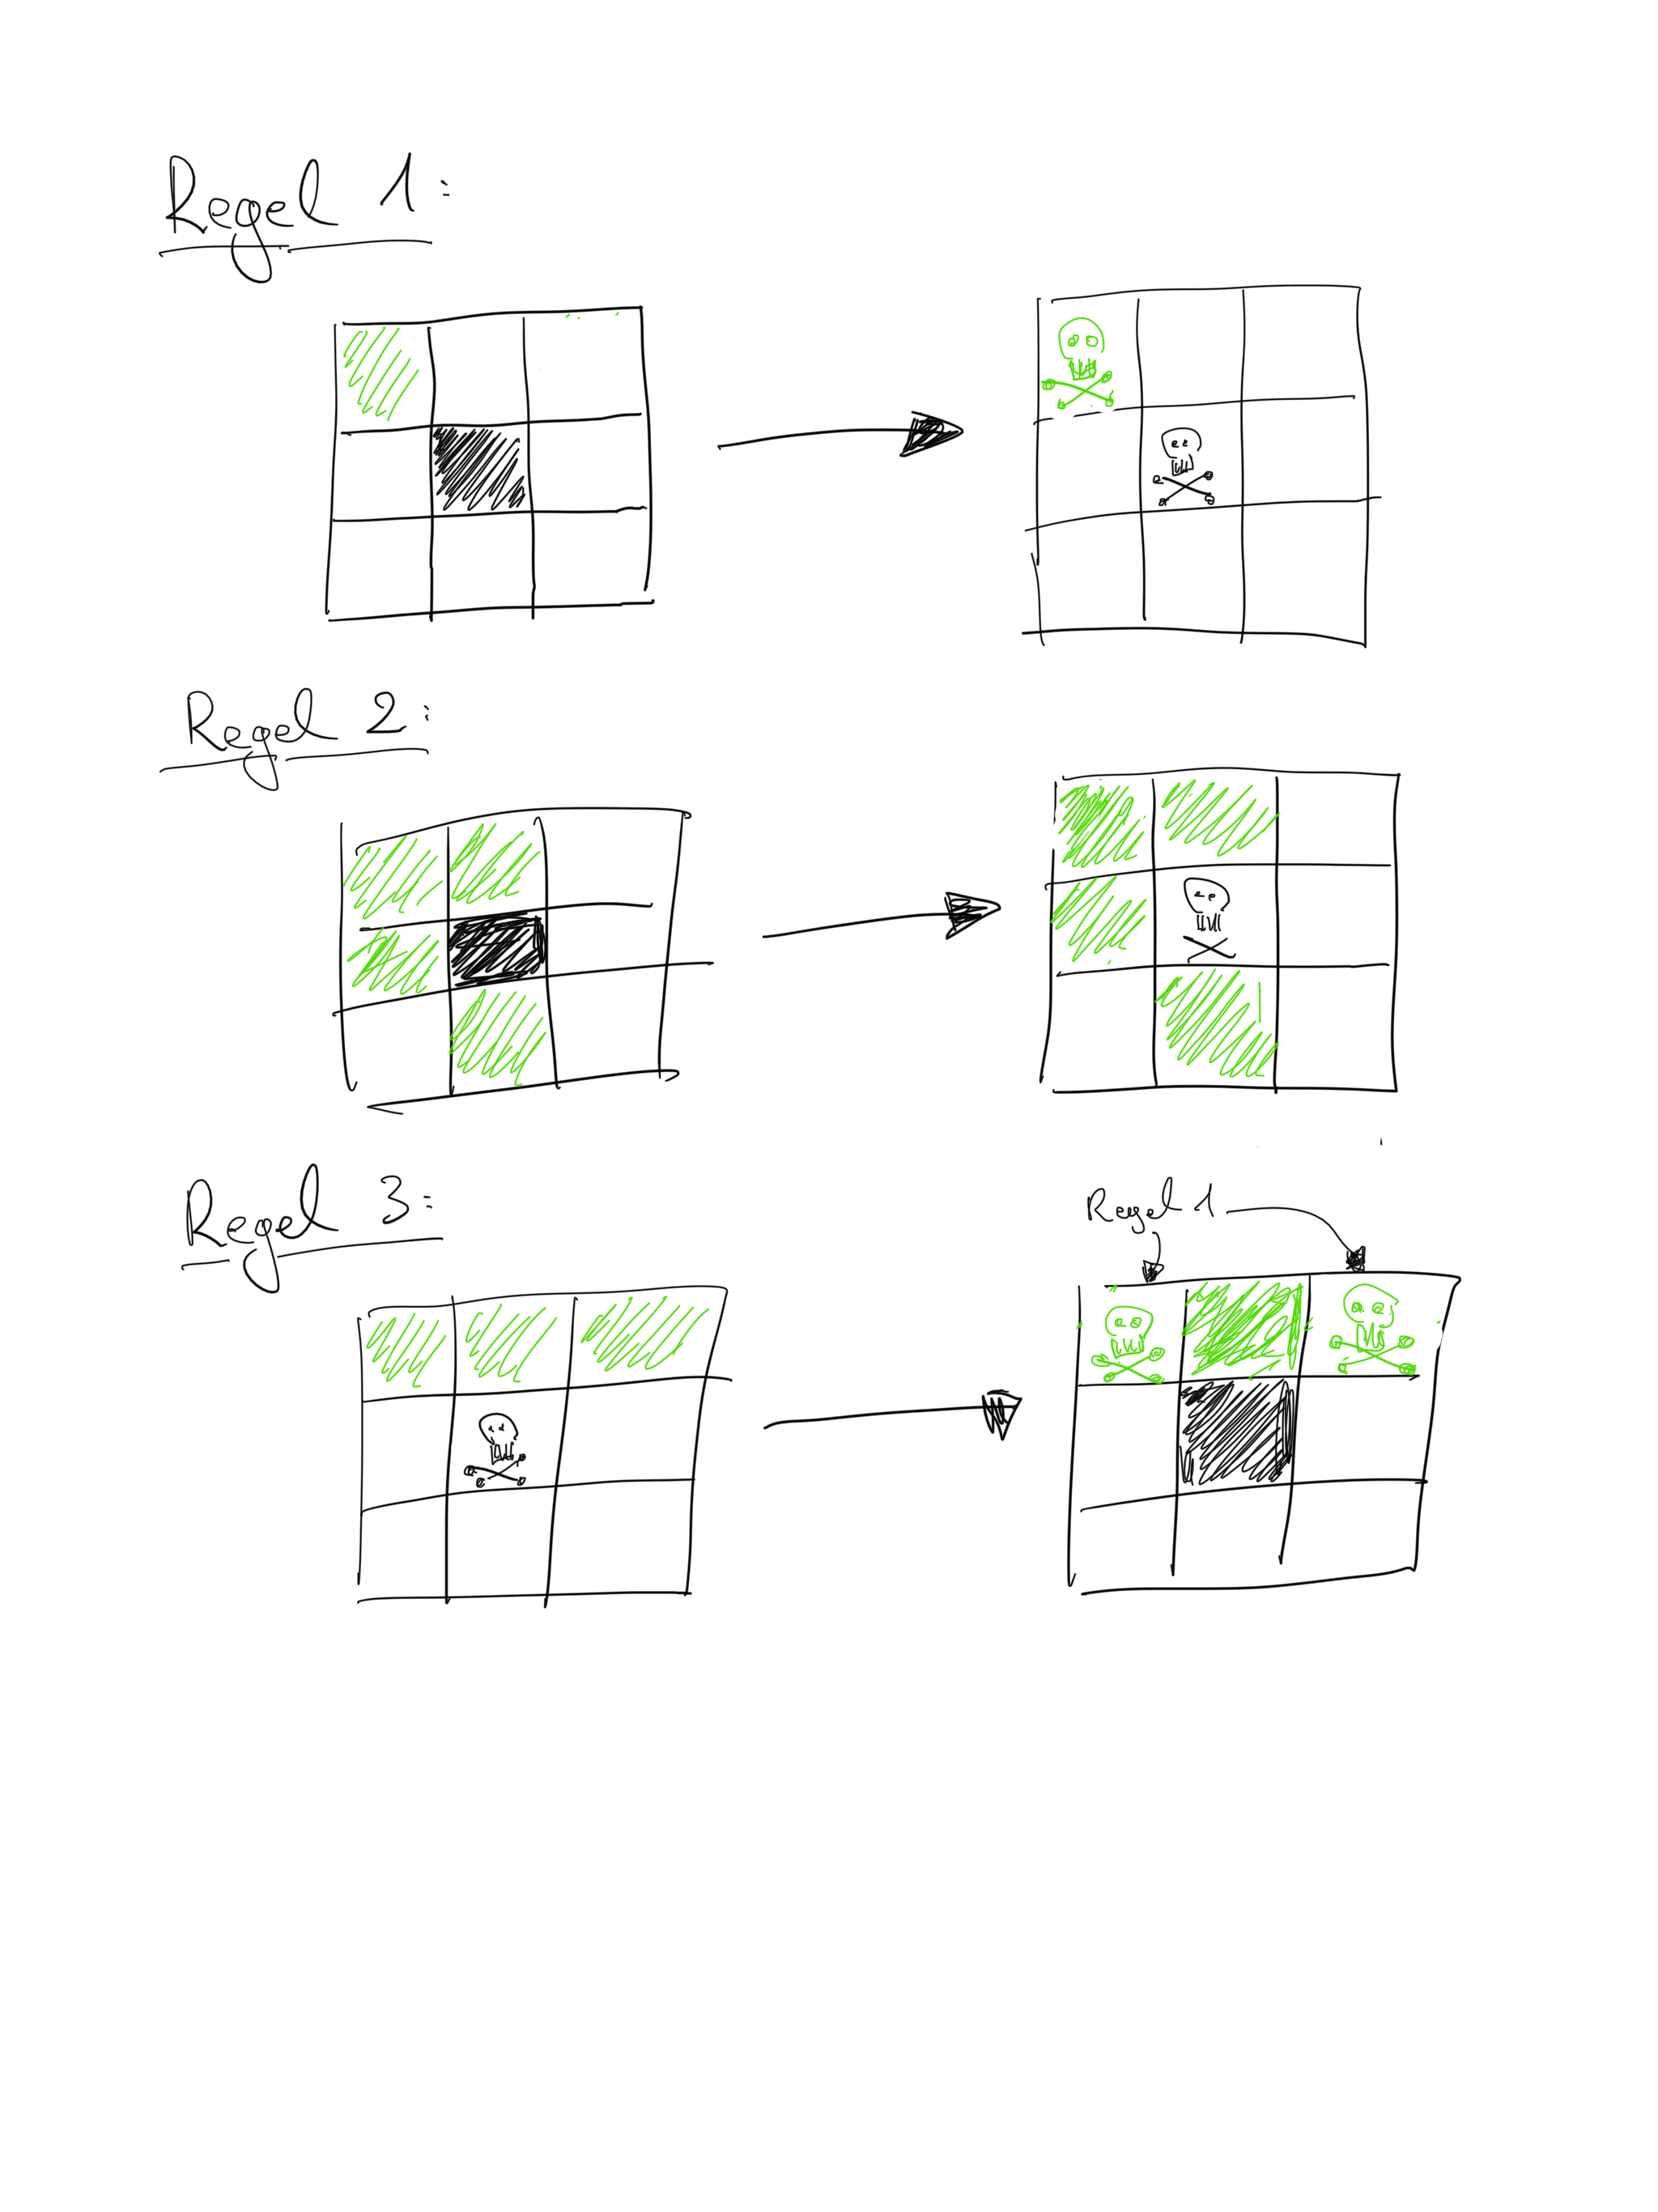 Regel 1:
Regel 2:
Regel 3:
Regel 1